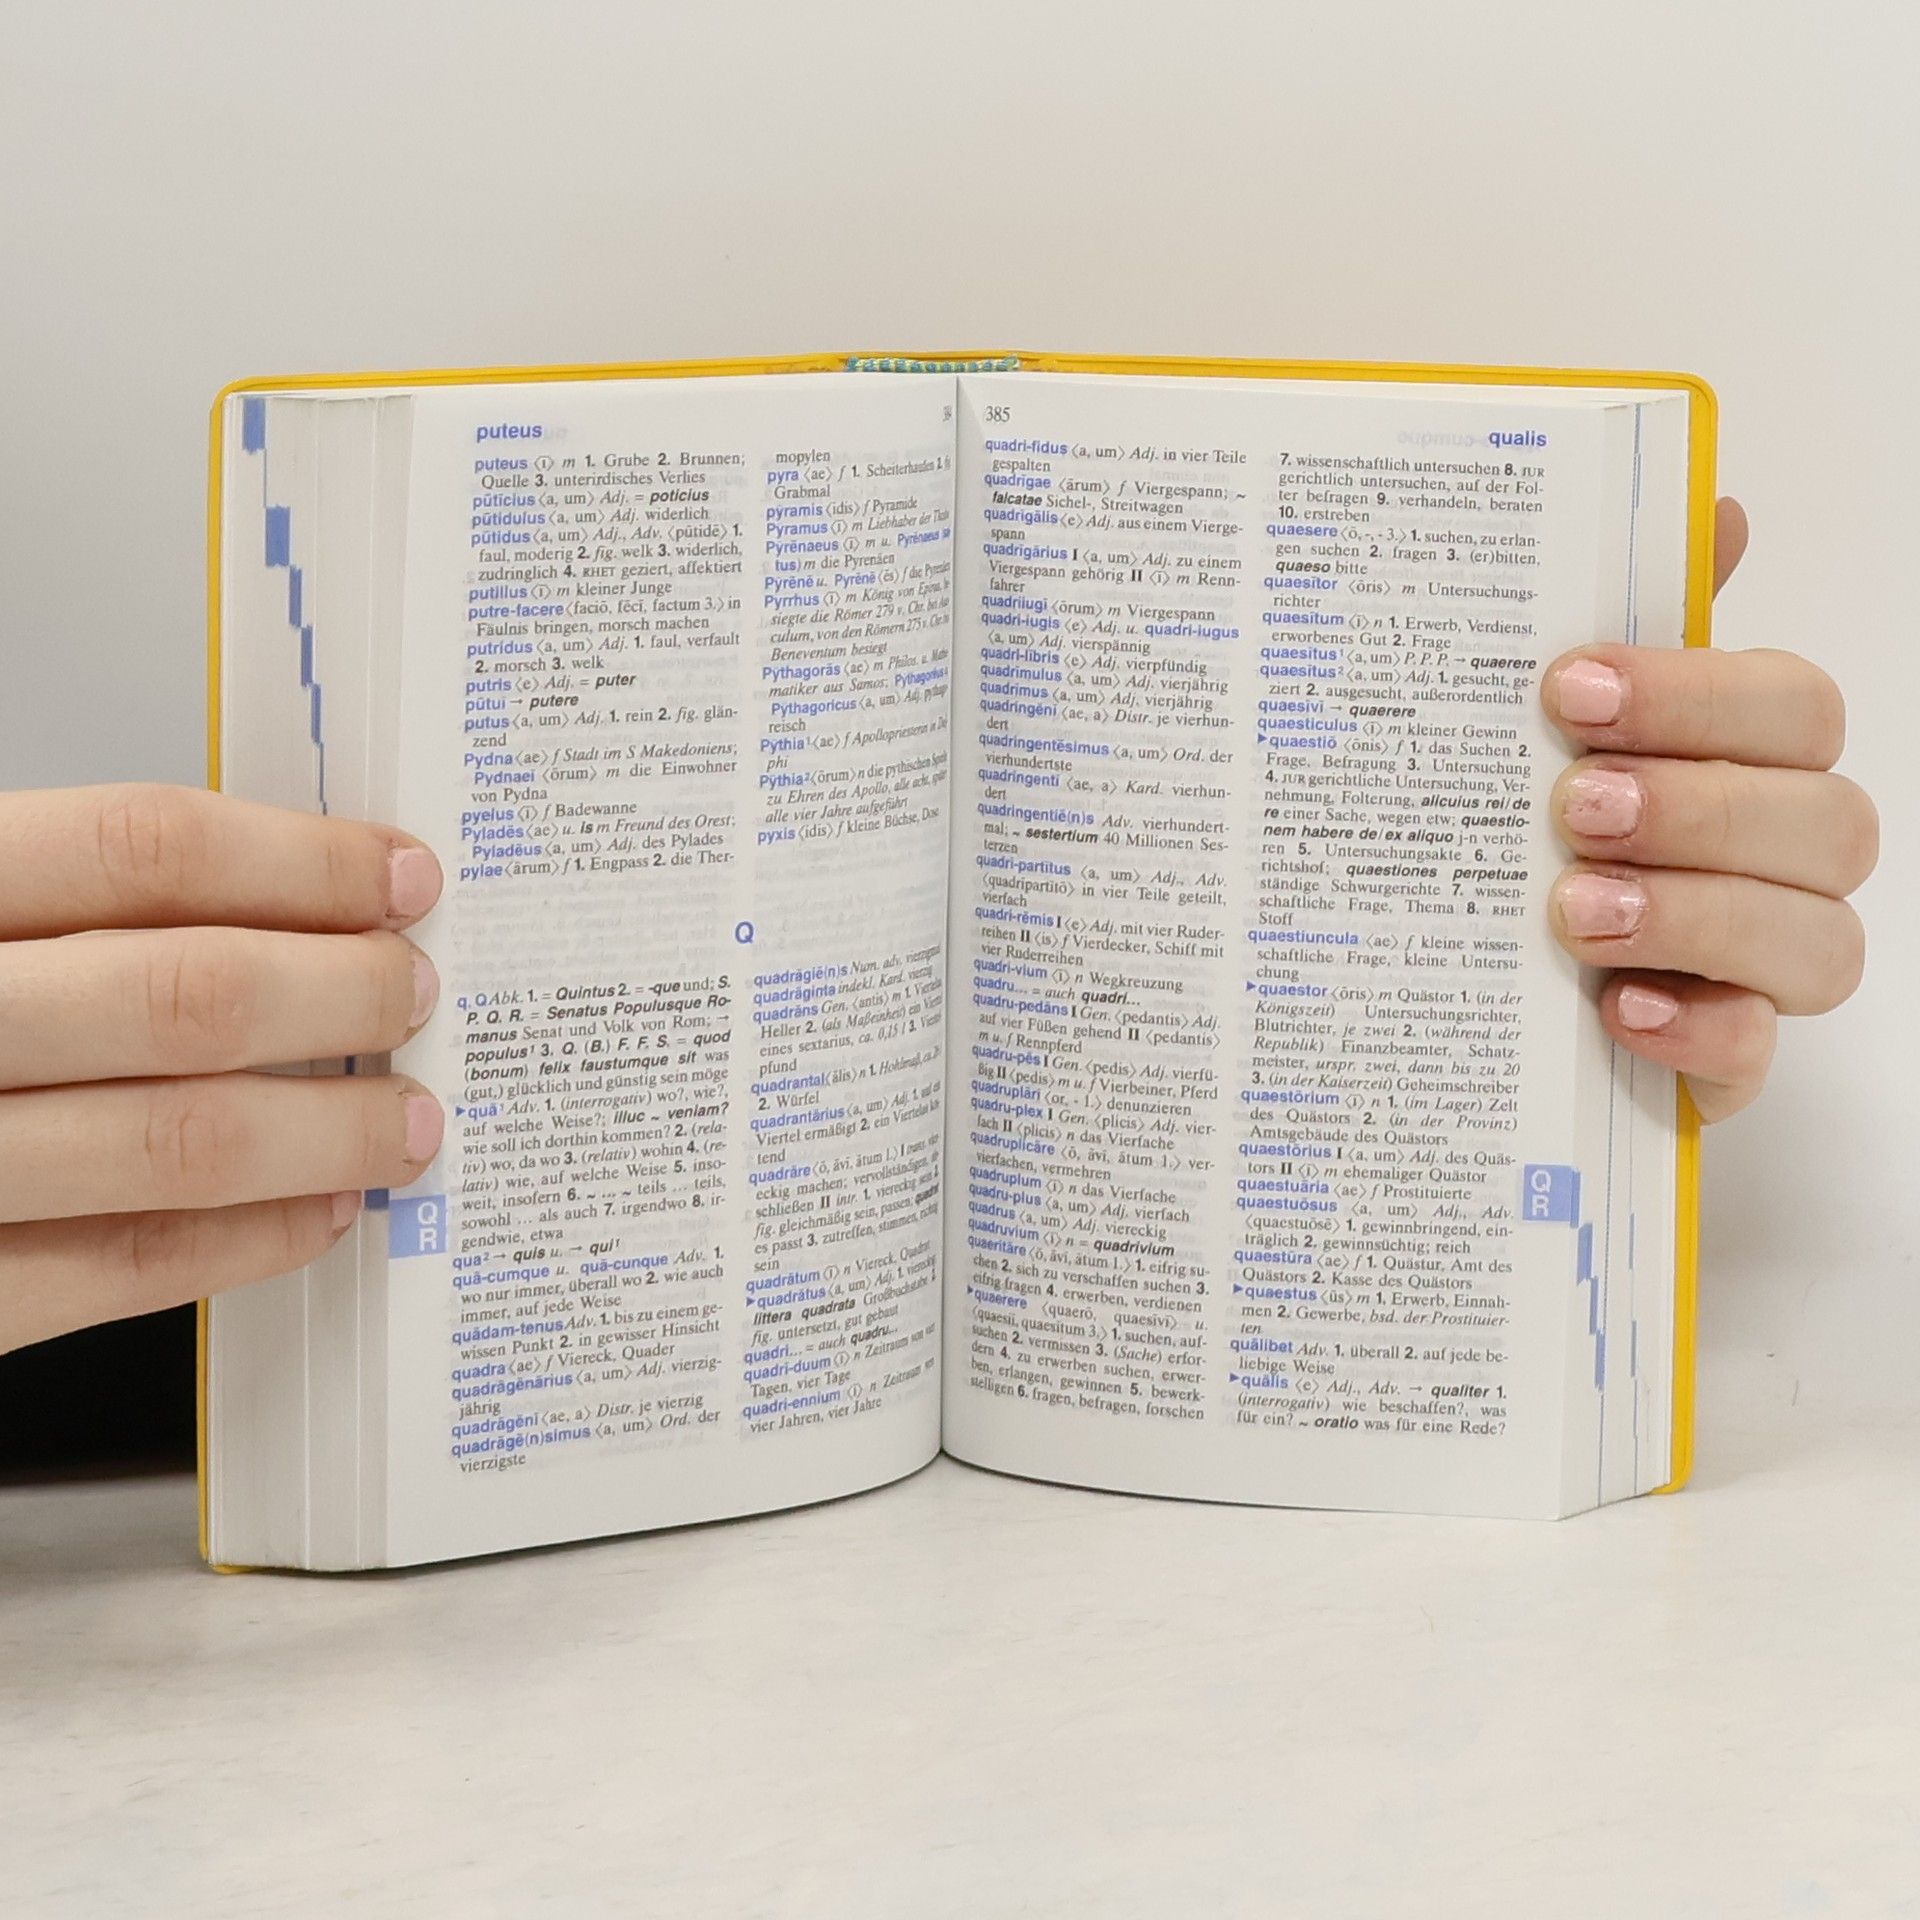 puteus
puteus ⟨ī⟩ m 1. Grube 2. Brunnen;
Quelle 3. unterirdisches Verlies
pūticius ⟨a, um⟩ Adj. = poticius
pūtidulus ⟨a, um⟩ Adj. widerlich
pūtidus ⟨a, um⟩ Adj., Adv. ⟨pūtidē⟩ 1.
faul, moderig 2. fig. welk 3. widerlich,
zudringlich 4. RHET geziert, affektiert
putillus ⟨ī⟩ m kleiner Junge
putre-facere ⟨faciō, fēcī, factum 3.⟩ in
Fäulnis bringen, morsch machen
putridus ⟨a, um⟩ Adj. 1. faul, verfault
2. morsch 3. welk
putris ⟨e⟩ Adj. = puter
pūtuī → putere
putus ⟨a, um⟩ Adj. 1. rein 2. fig. glän-
zend
Pydna ⟨ae⟩ f Stadt im S Makedoniens;
Pydnaeī ⟨ōrum⟩ m die Einwohner
von Pydna
pyelus ⟨ī⟩ f Badewanne
Pyladēs ⟨ae⟩ u. is m Freund des Orest;
Pyladēus ⟨a, um⟩ Adj. des Pylades
pylae ⟨ārum⟩ f 1. Engpass 2. die Ther-
mopylen
pyra ⟨ae⟩ f 1. Scheiterhaufen 2.
Grabmal
pȳramis ⟨idis⟩ f Pyramide
Pyramus ⟨ī⟩ m Liebhaber der
Pyrēnaeus ⟨ī⟩ m u. Pyrēnaeus
tus⟩ m die Pyrenäen
Pȳrēnē u. Pyrēnē ⟨ēs⟩ f die Pyrenäen
Pyrrhus ⟨ī⟩ m König von Epirus,
siegte die Römer 279 v. Chr. bei
culum, von den Römern 275 v. Chr.
Beneventum besiegt
Pȳthagorās ⟨ae⟩ m Philos. u. Mathe
matiker aus Samos;
Pȳthagoricus ⟨a, um⟩ Adj.
reisch
Pȳthia¹ ⟨ae⟩ f Apollopriesterin in Del
phi
Pȳthia² ⟨ōrum⟩ n die pythischen Spiele
zu Ehren des Apollo, alle acht, später
alle vier Jahre aufgeführt
pyxis ⟨idis⟩ f kleine Büchse, Dose
Q
q. Q Abk. 1. = Quintus 2. = -que und; S.
P. Q. R. = Senatus Populusque Ro-
manus Senat und Volk von Rom; →
populus¹ 3. Q. (B.) F. F. S. = quod
(bonum) felix faustumque sit was
(gut,) glücklich und günstig sein möge
▶quā¹ Adv. 1. (interrogativ) wo?, wie?,
auf welche Weise?; illuc ~ veniam?
wie soll ich dorthin kommen? 2. (rela-
tiv) wo, da wo 3. (relativ) wohin 4. (re-
lativ) wie, auf welche Weise 5. inso-
weit, insofern 6. ~ ... ~ teils ... teils,
sowohl ... als auch 7. irgendwo 8. ir-
gendwie, etwa
qua² → quis u. → qui¹
quā-cumque u. quā-cunque Adv. 1.
wo nur immer, überall wo 2. wie auch
immer, auf jede Weise
quādam-tenus Adv. 1. bis zu einem ge-
wissen Punkt 2. in gewisser Hinsicht
quadra ⟨ae⟩ f Viereck, Quader
quadrāgēnārius ⟨a, um⟩ Adj. vierzig-
jährig
quadrāgēnī ⟨ae, a⟩ Distr. je vierzig
quadrāgē(n)simus ⟨a, um⟩ Ord. der
vierzigste
quadrāgiē(n)s Num. adv. vierzigmal
quadrāgintā indekl. Kard. vierzig
quadrāns Gen. ⟨antis⟩ m 1. Viertel
Heller 2. (als Maßeinheit) ein Viertel
eines sextarius, ca. 0,15 l 3. Viertel
pfund
quadrantal ⟨ālis⟩ n 1. Hohlmaß, ca.
2. Würfel
quadrantārius ⟨a, um⟩ Adj. 1.
Viertel ermäßigt 2. ein Viertel
tend
quadrāre ⟨ō, āvī, ātum 1.⟩ I trans. vier
eckig machen; vervollständigen,
schließen II intr. 1. viereckig sein 2.
fig. gleichmäßig sein, passen;
es passt 3. zutreffen, stimmen,
sein
quadrātum ⟨ī⟩ n Viereck, Quadrat
▶quadrātus ⟨a, um⟩ Adj. 1. viereckig
littera quadrata Großbuchstabe 2.
fig. untersetzt, gut gebaut
quadri... = auch quadru...
quadri-duum ⟨ī⟩ n Zeitraum von vier
Tagen, vier Tage
quadri-ennium ⟨ī⟩ n Zeitraum von
vier Jahren, vier Jahre
Q
R
385
qualis
quadri-fidus ⟨a, um⟩ Adj. in vier Teile
gespalten
quadrīgae ⟨ārum⟩ f Viergespann; ~
falcatae Sichel-, Streitwagen
quadrīgālis ⟨e⟩ Adj. aus einem Vierge-
spann
quadrīgārius I ⟨a, um⟩ Adj. zu einem
Viergespann gehörig II ⟨ī⟩ m Renn-
fahrer
quadriiugī ⟨ōrum⟩ m Viergespann
quadri-iugis ⟨e⟩ Adj. u. quadri-iugus
⟨a, um⟩ Adj. vierspännig
quadri-lībris ⟨e⟩ Adj. vierpfündig
quadrīmulus ⟨a, um⟩ Adj. vierjährig
quadrīmus ⟨a, um⟩ Adj. vierjährig
quadringēnī ⟨ae, a⟩ Distr. je vierhun-
dert
quadringentēsimus ⟨a, um⟩ Ord. der
vierhundertste
quadringentī ⟨ae, a⟩ Kard. vierhun-
dert
quadringentiē(n)s Adv. vierhundert-
mal; ~ sestertium 40 Millionen Ses-
terzen
quadri-partītus ⟨a, um⟩ Adj., Adv.
⟨quadripartītō⟩ in vier Teile geteilt,
vierfach
quadri-rēmis I ⟨e⟩ Adj. mit vier Ruder-
reihen II ⟨is⟩ f Vierdecker, Schiff mit
vier Ruderreihen
quadri-vium ⟨ī⟩ n Wegkreuzung
quadru... = auch quadri...
quadru-pedāns I Gen. ⟨pedantis⟩ Adj.
auf vier Füßen gehend II ⟨pedantis⟩
m u. f Rennpferd
quadru-pēs I Gen. ⟨pedis⟩ Adj. vierfü-
ßig II ⟨pedis⟩ m u. f Vierbeiner, Pferd
quadruplārī ⟨or, - 1.⟩ denunzieren
quadru-plex I Gen. ⟨plicis⟩ Adj. vier-
fach II ⟨plicis⟩ n das Vierfache
quadruplicāre ⟨ō, āvī, ātum 1.⟩ ver-
vierfachen, vermehren
quadruplum ⟨ī⟩ n das Vierfache
quadru-plus ⟨a, um⟩ Adj. vierfach
quadrus ⟨a, um⟩ Adj. viereckig
quadruvium ⟨ī⟩ n = quadrivium
quaeritāre ⟨ō, āvī, ātum 1.⟩ 1. eifrig su-
chen 2. sich zu verschaffen suchen 3.
eifrig fragen 4. erwerben, verdienen
▶quaerere ⟨quaerō, quaesīvī⟩ u.
⟨quaesiī, quaesītum 3.⟩ 1. suchen, auf-
suchen 2. vermissen 3. (Sache) erfor-
dern 4. zu erwerben suchen, erwer-
ben, erlangen, gewinnen 5. bewerk-
stelligen 6. fragen, befragen, forschen
7. wissenschaftlich untersuchen 8. JUR
gerichtlich untersuchen, auf der Fol-
ter befragen 9. verhandeln, beraten
10. erstreben
quaesere ⟨ō, -, - 3.⟩ 1. suchen, zu erlan-
gen suchen 2. fragen 3. (er)bitten,
quaeso bitte
quaesītor ⟨ōris⟩ m Untersuchungs-
richter
quaesītum ⟨ī⟩ n 1. Erwerb, Verdienst,
erworbenes Gut 2. Frage
quaesītus¹ ⟨a, um⟩ P. P. P. → quaerere
quaesītus² ⟨a, um⟩ Adj. 1. gesucht, ge-
ziert 2. ausgesucht, außerordentlich
quaesīvī → quaerere
quaesticulus ⟨ī⟩ m kleiner Gewinn
▶quaestiō ⟨ōnis⟩ f 1. das Suchen 2.
Frage, Befragung 3. Untersuchung
4. JUR gerichtliche Untersuchung, Ver-
nehmung, Folterung, alicuius rei/de
re einer Sache, wegen etw; quaestio-
nem habere de/ex aliquo j-n verhö-
ren 5. Untersuchungsakte 6. Ge-
richtshof; quaestiones perpetuae
ständige Schwurgerichte 7. wissen-
schaftliche Frage, Thema 8. RHET
Stoff
quaestiuncula ⟨ae⟩ f kleine wissen-
schaftliche Frage, kleine Untersu-
chung
▶quaestor ⟨ōris⟩ m Quästor 1. (in der
Königszeit) Untersuchungsrichter,
Blutrichter, je zwei 2. (während der
Republik) Finanzbeamter, Schatz-
meister, urspr. zwei, dann bis zu 20
3. (in der Kaiserzeit) Geheimschreiber
quaestōrium ⟨ī⟩ n 1. (im Lager) Zelt
des Quästors 2. (in der Provinz)
Amtsgebäude des Quästors
quaestōrius I ⟨a, um⟩ Adj. des Quäs-
tors II ⟨ī⟩ m ehemaliger Quästor
quaestuāria ⟨ae⟩ f Prostituierte
quaestuōsus ⟨a, um⟩ Adj., Adv.
⟨quaestuōsē⟩ 1. gewinnbringend, ein-
träglich 2. gewinnsüchtig; reich
quaestūra ⟨ae⟩ f 1. Quästur, Amt des
Quästors 2. Kasse des Quästors
▶quaestus ⟨ūs⟩ m 1. Erwerb, Einnah-
men 2. Gewerbe, bsd. der Prostituier-
ten
quālibet Adv. 1. überall 2. auf jede be-
liebige Weise
▶quālis ⟨e⟩ Adj., Adv. → qualiter 1.
(interrogativ) wie beschaffen?, was
für ein? ~ oratio was für eine Rede?
Q
R